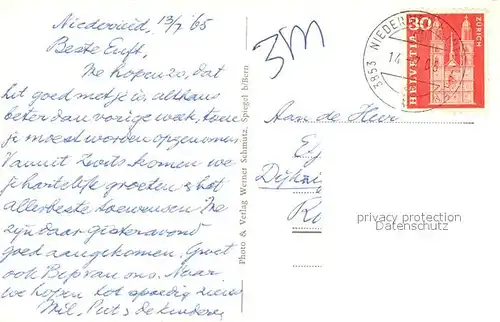 Niederried, 13/7 '65
Beste Euft,
We hopen zo, dat
het goed met je is, althans
beter dan vorige week, toen
je moest worden opgenomen.
Vanuit Zwits. komen we
je hartelijk groeten & het
allerbeste toewensen. We
zijn daar gisteravond
goed aangekomen. Groet
ook Bep van ons. Maar
we hopen tot spoedig ziens
Wil, Puts & de kinderen
Photo & Verlag Werner Schmutz, Spiegel b/Bern
3M
3853 NIEDER
14
HELVETIA
30
ZÜRICH
Aan de Heer
Ey
Dijkzi
Ro
privacy protection
Datenschutz